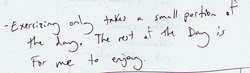 -Exercising only takes a small portion of
the day. The rest of the Day is
For me to enjoy.